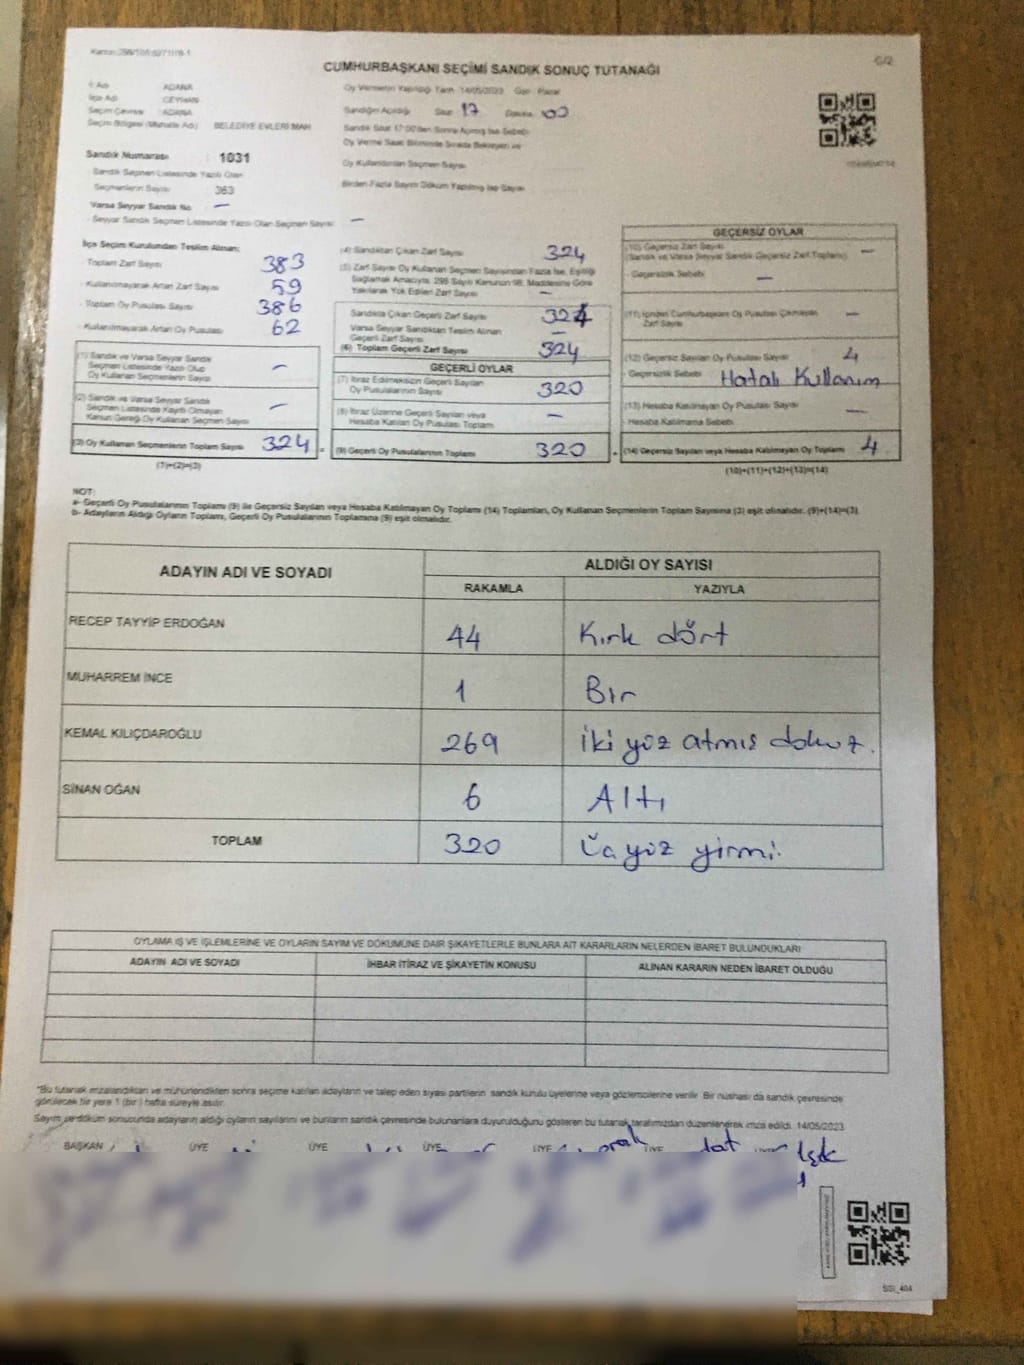 C/2
CUMHURBAŞKANI SEÇİMİ SANDIK SONUÇ TUTANAĞI
İl Adı ADANA
İlçe Adı CEYHAN
Seçim Çevresi ADANA
Seçim Bölgesi (Mahalle Adı) BELEDİYE EVLERİ MAH
Sandık Numarası : 1031
Sandık Seçmen Listesinde Yazılı Olan
Seçmenlerin Sayısı : 363
Varsa Seyyar Sandık No : —
Seyyar Sandık Seçmen Listesinde Yazılı Olan Seçmen Sayısı : —
Oy Vermenin Yapıldığı Tarih 14/05/2023 Gün Pazar
Sandığın Açıldığı Saat 17 Dakika 00
Sandık Saat 17:00'den Sonra Açılmış İse Sebebi
Oy Verme Saat Bitiminde Sırada Bekleyen ve
Oy Kullandırılan Seçmen Sayısı
Birden Fazla Sayım Döküm Yapılmış İse Sayısı
İlçe Seçim Kurulundan Teslim Alınan:
Toplam Zarf Sayısı 383
Kullanılmayarak Artan Zarf Sayısı 59
Toplam Oy Pusulası Sayısı 386
Kullanılmayarak Artan Oy Pusulası 62
(1) Sandık ve Varsa Seyyar Sandık
Seçmen Listesinde Yazılı Olup
Oy Kullanan Seçmenlerin Sayısı —
(2) Sandık ve Varsa Seyyar Sandık
Seçmen Listesinde Kayıtlı Olmayan
Kanun Gereği Oy Kullanan Seçmen Sayısı —
(3) Oy Kullanan Seçmenlerin Toplam Sayısı 324 =
(1)+(2)=(3)
(4) Sandıktan Çıkan Zarf Sayısı 324
(5) Zarf Sayısı Oy Kullanan Seçmen Sayısından Fazla İse, Eşitliği
Sağlamak Amacıyla, 298 Sayılı Kanunun 98. Maddesine Göre
Yakılarak Yok Edilen Zarf Sayısı —
Sandıkta Çıkan Geçerli Zarf Sayısı 324
Varsa Seyyar Sandıktan Teslim Alınan
Geçerli Zarf Sayısı —
(6) Toplam Geçerli Zarf Sayısı 324
GEÇERLİ OYLAR
(7) İtiraz Edilmeksizin Geçerli Sayılan
Oy Pusulalarının Sayısı 320
(8) İtiraz Üzerine Geçerli Sayılan veya
Hesaba Katılan Oy Pusulası Toplam —
(9) Geçerli Oy Pusulalarının Toplamı 320 +
GEÇERSİZ OYLAR
(10) Geçersiz Zarf Sayısı
(Sandık ve Varsa Seyyar Sandık Geçersiz Zarf Toplamı) —
Geçersizlik Sebebi —
(11) İçinden Cumhurbaşkanı Oy Pusulası Çıkmayan
Zarf Sayısı —
(12) Geçersiz Sayılan Oy Pusulası Sayısı 4
Geçersizlik Sebebi Hatalı Kullanım
(13) Hesaba Katılmayan Oy Pusulası Sayısı —
Hesaba Katılmama Sebebi
(14) Geçersiz Sayılan veya Hesaba Katılmayan Oy Toplamı 4
(10)+(11)+(12)+(13)=(14)
NOT:
a- Geçerli Oy Pusulalarının Toplamı (9) ile Geçersiz Sayılan veya Hesaba Katılmayan Oy Toplamı (14) Toplamları, Oy Kullanan Seçmenlerin Toplam Sayısına (3) eşit olmalıdır. (9)+(14)=(3)
b- Adayların Aldığı Oyların Toplamı, Geçerli Oy Pusulalarının Toplamına (9) eşit olmalıdır.
ADAYIN ADI VE SOYADI ALDIĞI OY SAYISI
RAKAMLA YAZIYLA
RECEP TAYYİP ERDOĞAN 44 Kırk dört
MUHARREM İNCE 1 Bir
KEMAL KILIÇDAROĞLU 269 iki yüz atmış dokuz.
SİNAN OĞAN 6 Altı
TOPLAM 320 Üç yüz yirmi.
OYLAMA İŞ VE İŞLEMLERİNE VE OYLARIN SAYIM VE DÖKÜMÜNE DAİR ŞİKAYETLERLE BUNLARA AİT KARARLARIN NELERDEN İBARET BULUNDUKLARI
ADAYIN ADI VE SOYADI İHBAR İTİRAZ VE ŞİKAYETİN KONUSU ALINAN KARARIN NEDEN İBARET OLDUĞU
"Bu tutanak imzalandıktan ve mühürlendikten sonra seçime katılan adayların ve talep eden siyasi partilerin sandık kurulu üyelerine veya gözlemcilerine verilir. Bir nüshası da sandık çevresinde
görülecek bir yere 1 (bir) hafta süreyle asılır.
Sayım ve döküm sonucunda adayların aldığı oyların sayılarını ve bunların sandık çevresinde bulunanlara duyurulduğunu gösteren bu tutanak tarafımızdan düzenlenerek imza edildi. 14/05/2023
BAŞKAN ÜYE ÜYE ÜYE ÜYE ÜYE